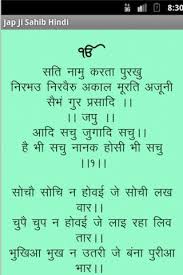 8:30
Jap Ji Sahib Hindi
ੴ
सति नामु करता पुरखु
निरभउ निरवैरु अकाल मूरति अजूनी
सैभं गुर प्रसादि ।।
।। जपु ।।
आदि सचु जुगादि सचु ।।
है भी सचु नानक होसी भी सचु
।।१।।
सोची सोचि न होवई जे सोची लख
वार ।।
चुपै चुप न होवई जे लाइ रहा लिव
तार ।।
भुखिआ भुख न उतरी जे बंना पुरीआ
भार ।।